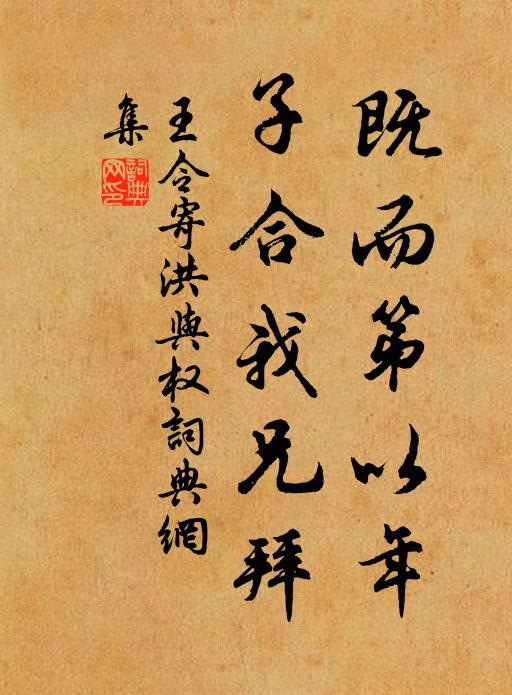 既而第以年
子合我兄拜
王令寄洪與权詞典網
集
詞典
网印